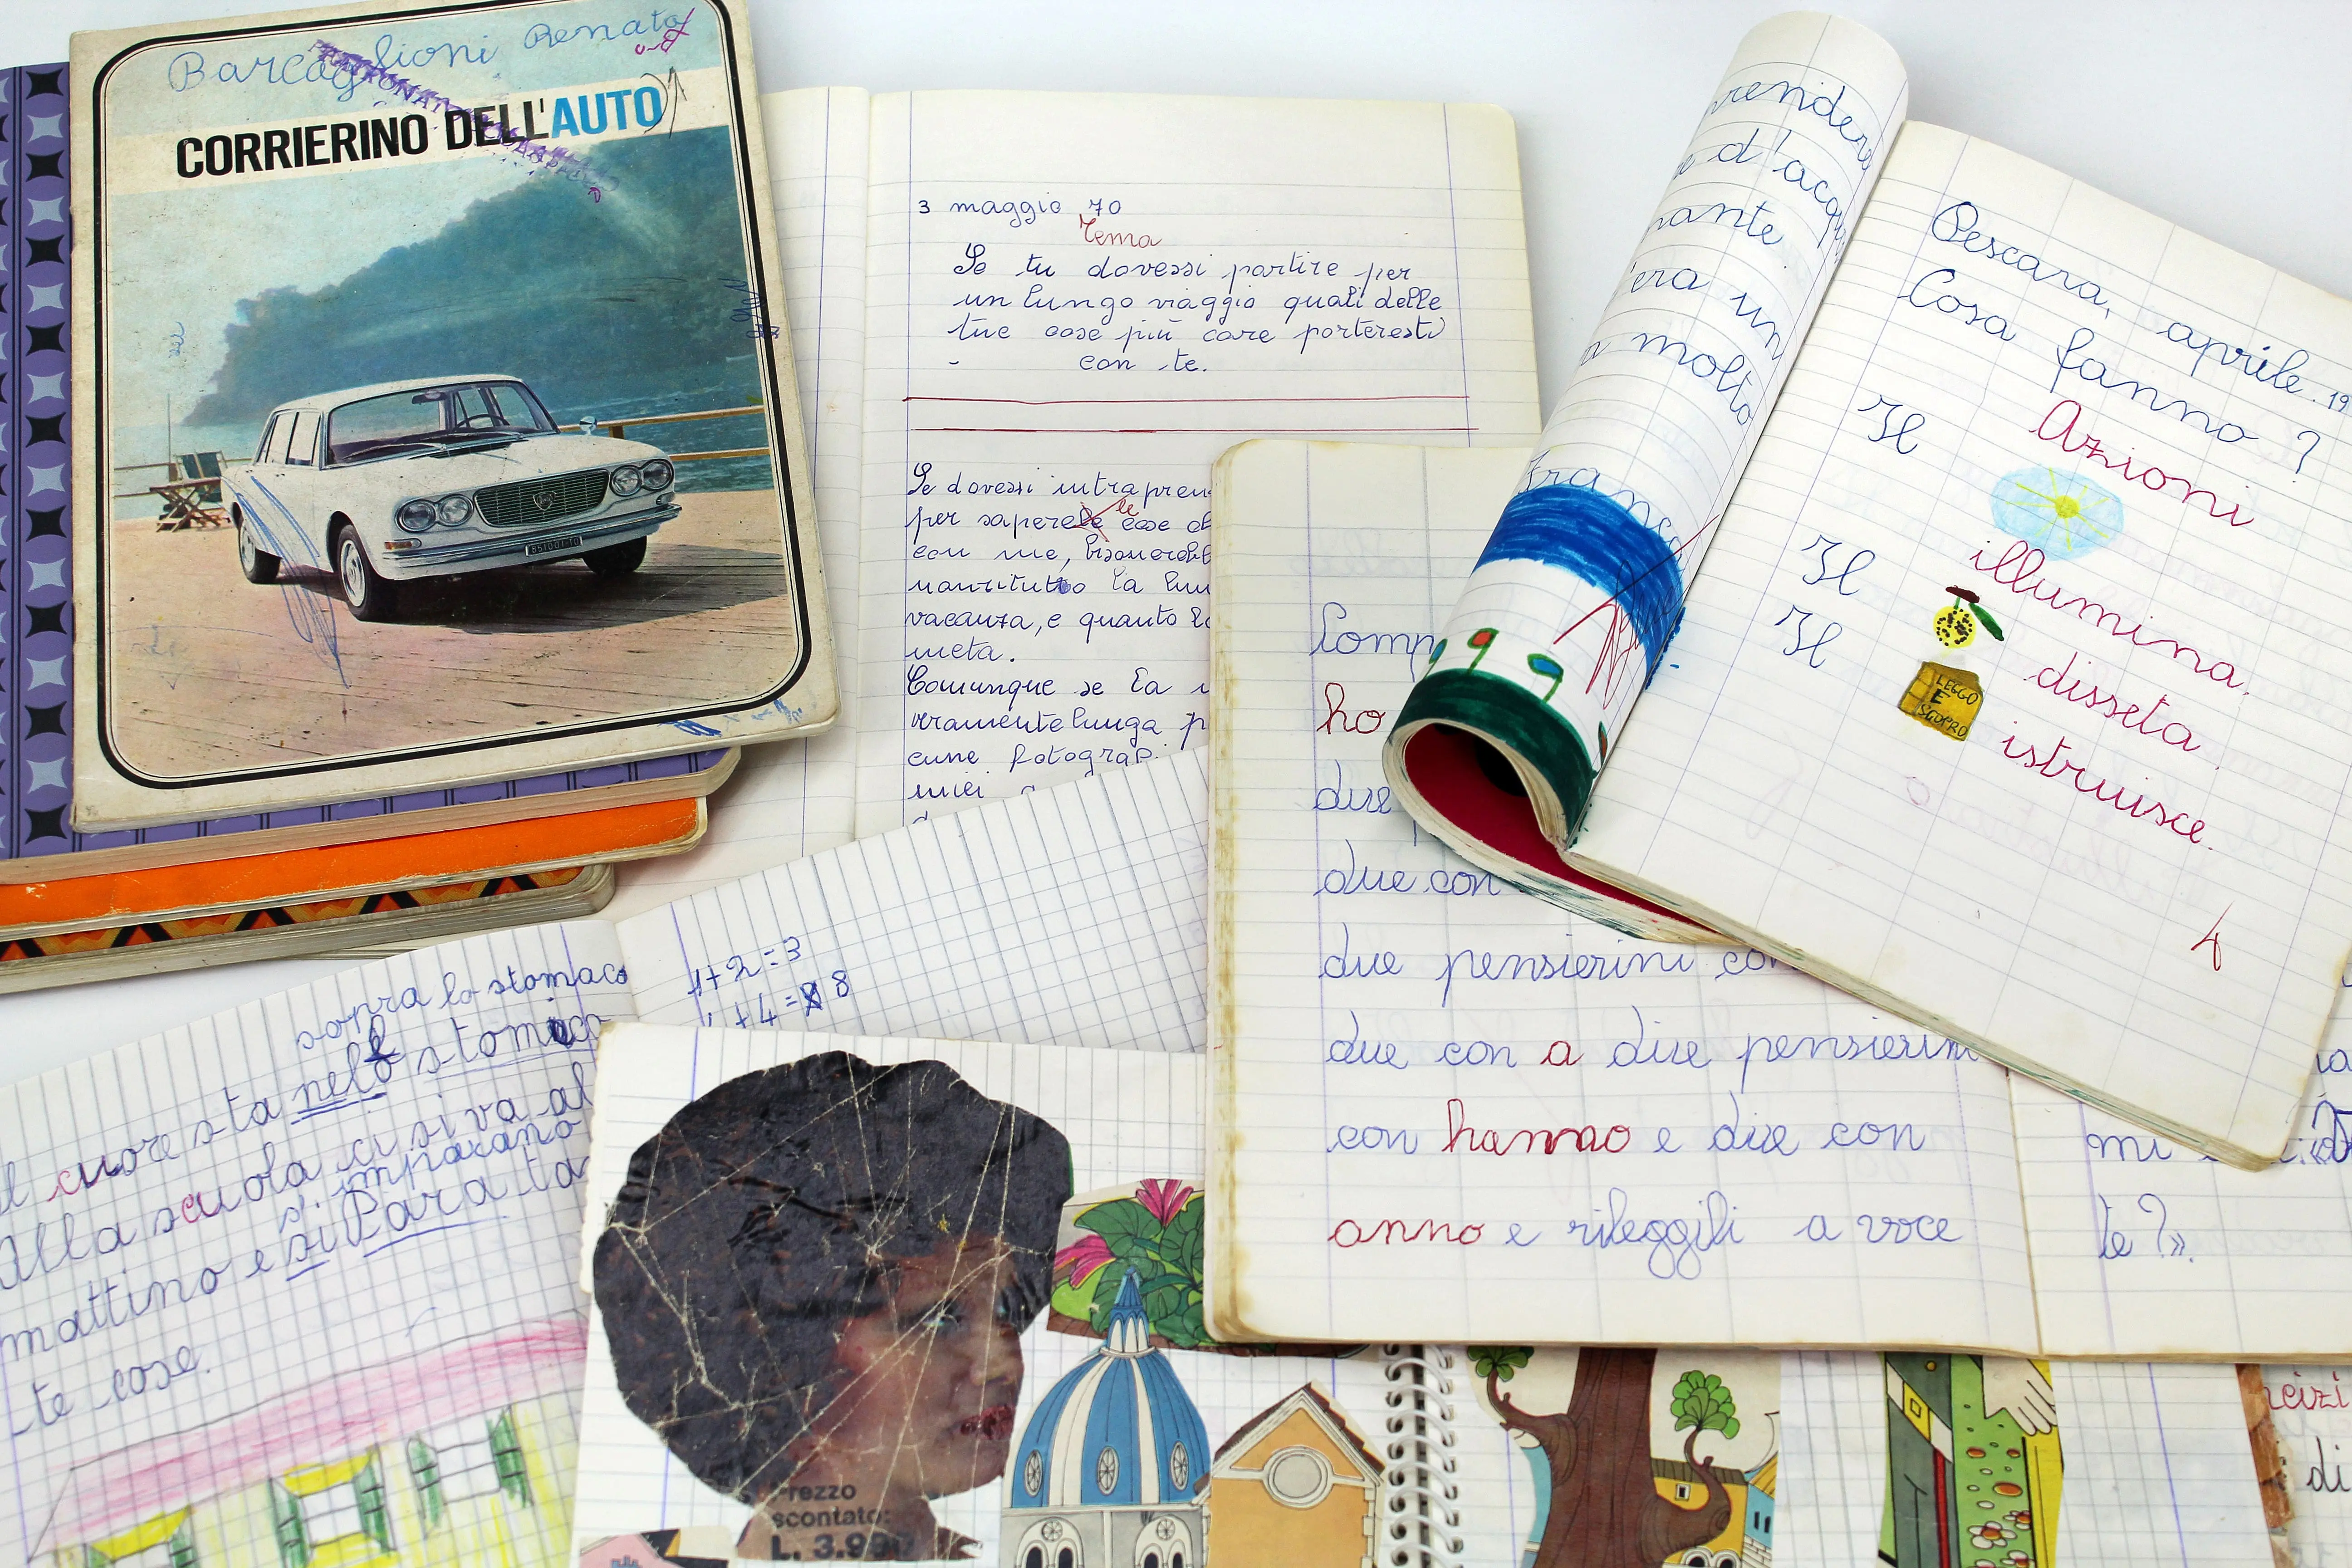 Barcaglioni Renato
CORRIERINO DELL'AUTO
3 maggio 70
Tema
Se tu dovessi partire per
un lungo viaggio quali delle
tue cose più care porteresti
con te.
Se dovessi
per sapere le cose
con me,
la
vacanza, e quanto
meta.
Comunque se la
veramente lunga
cune
miei
rendere
e d'acqu
nante
'era un
molto
Pescara, aprile. 19
Cosa fanno?
Azioni
Il
illumina.
Il
disseta.
Il
LEGGO
E
SCOPRO
istruisce.
4
Comp
ho
due
due con
due pensierini con
due con a due pensierini
con hanno e due con
anno e rileggili a voce
mi
te?».
1+2=3
+4= 8
sopra lo stomaco
Il cuore sta nello stomaco
Alla scuola ci si va al
s'imparano
mattino e si Para ta
te cose.
Prezzo
scontato:
L. 3.99
cizi
di